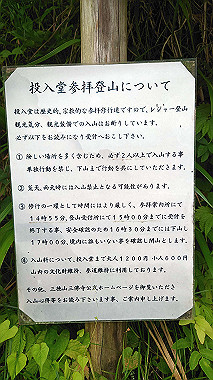 投入堂参拝登山について
投入堂は歴史的、宗教的な参拝修行道ですので、レジャー登山
観光気分、観光装備での入山はお断りしています。
必ず以下をお読みになり受付へおこし下さい。
① 険しい場所を多く含むため、必ず2人以上で入山する事
単独行動を禁じ、下山まで行動を共にしていただきます。
② 荒天、雨天時には入山禁止となる可能性があります。
③ 修行の一環として時間にはより厳しく、参拝案内所にて
14時55分、登山受付所にて15時00分までに受付を
終了する事、安全確認のため16時30分までには下山し
17時00分、境内に誰もいない事を確認し閉山とします。
④ 入山料について、投入堂まで大人1200円 小人600円
山内の文化財維持、参道維持に利用しております。
その他、三徳山三佛寺公式ホームページを御覧いただき
入山心得等をお読み下さいます事、ご案内申し上げます。